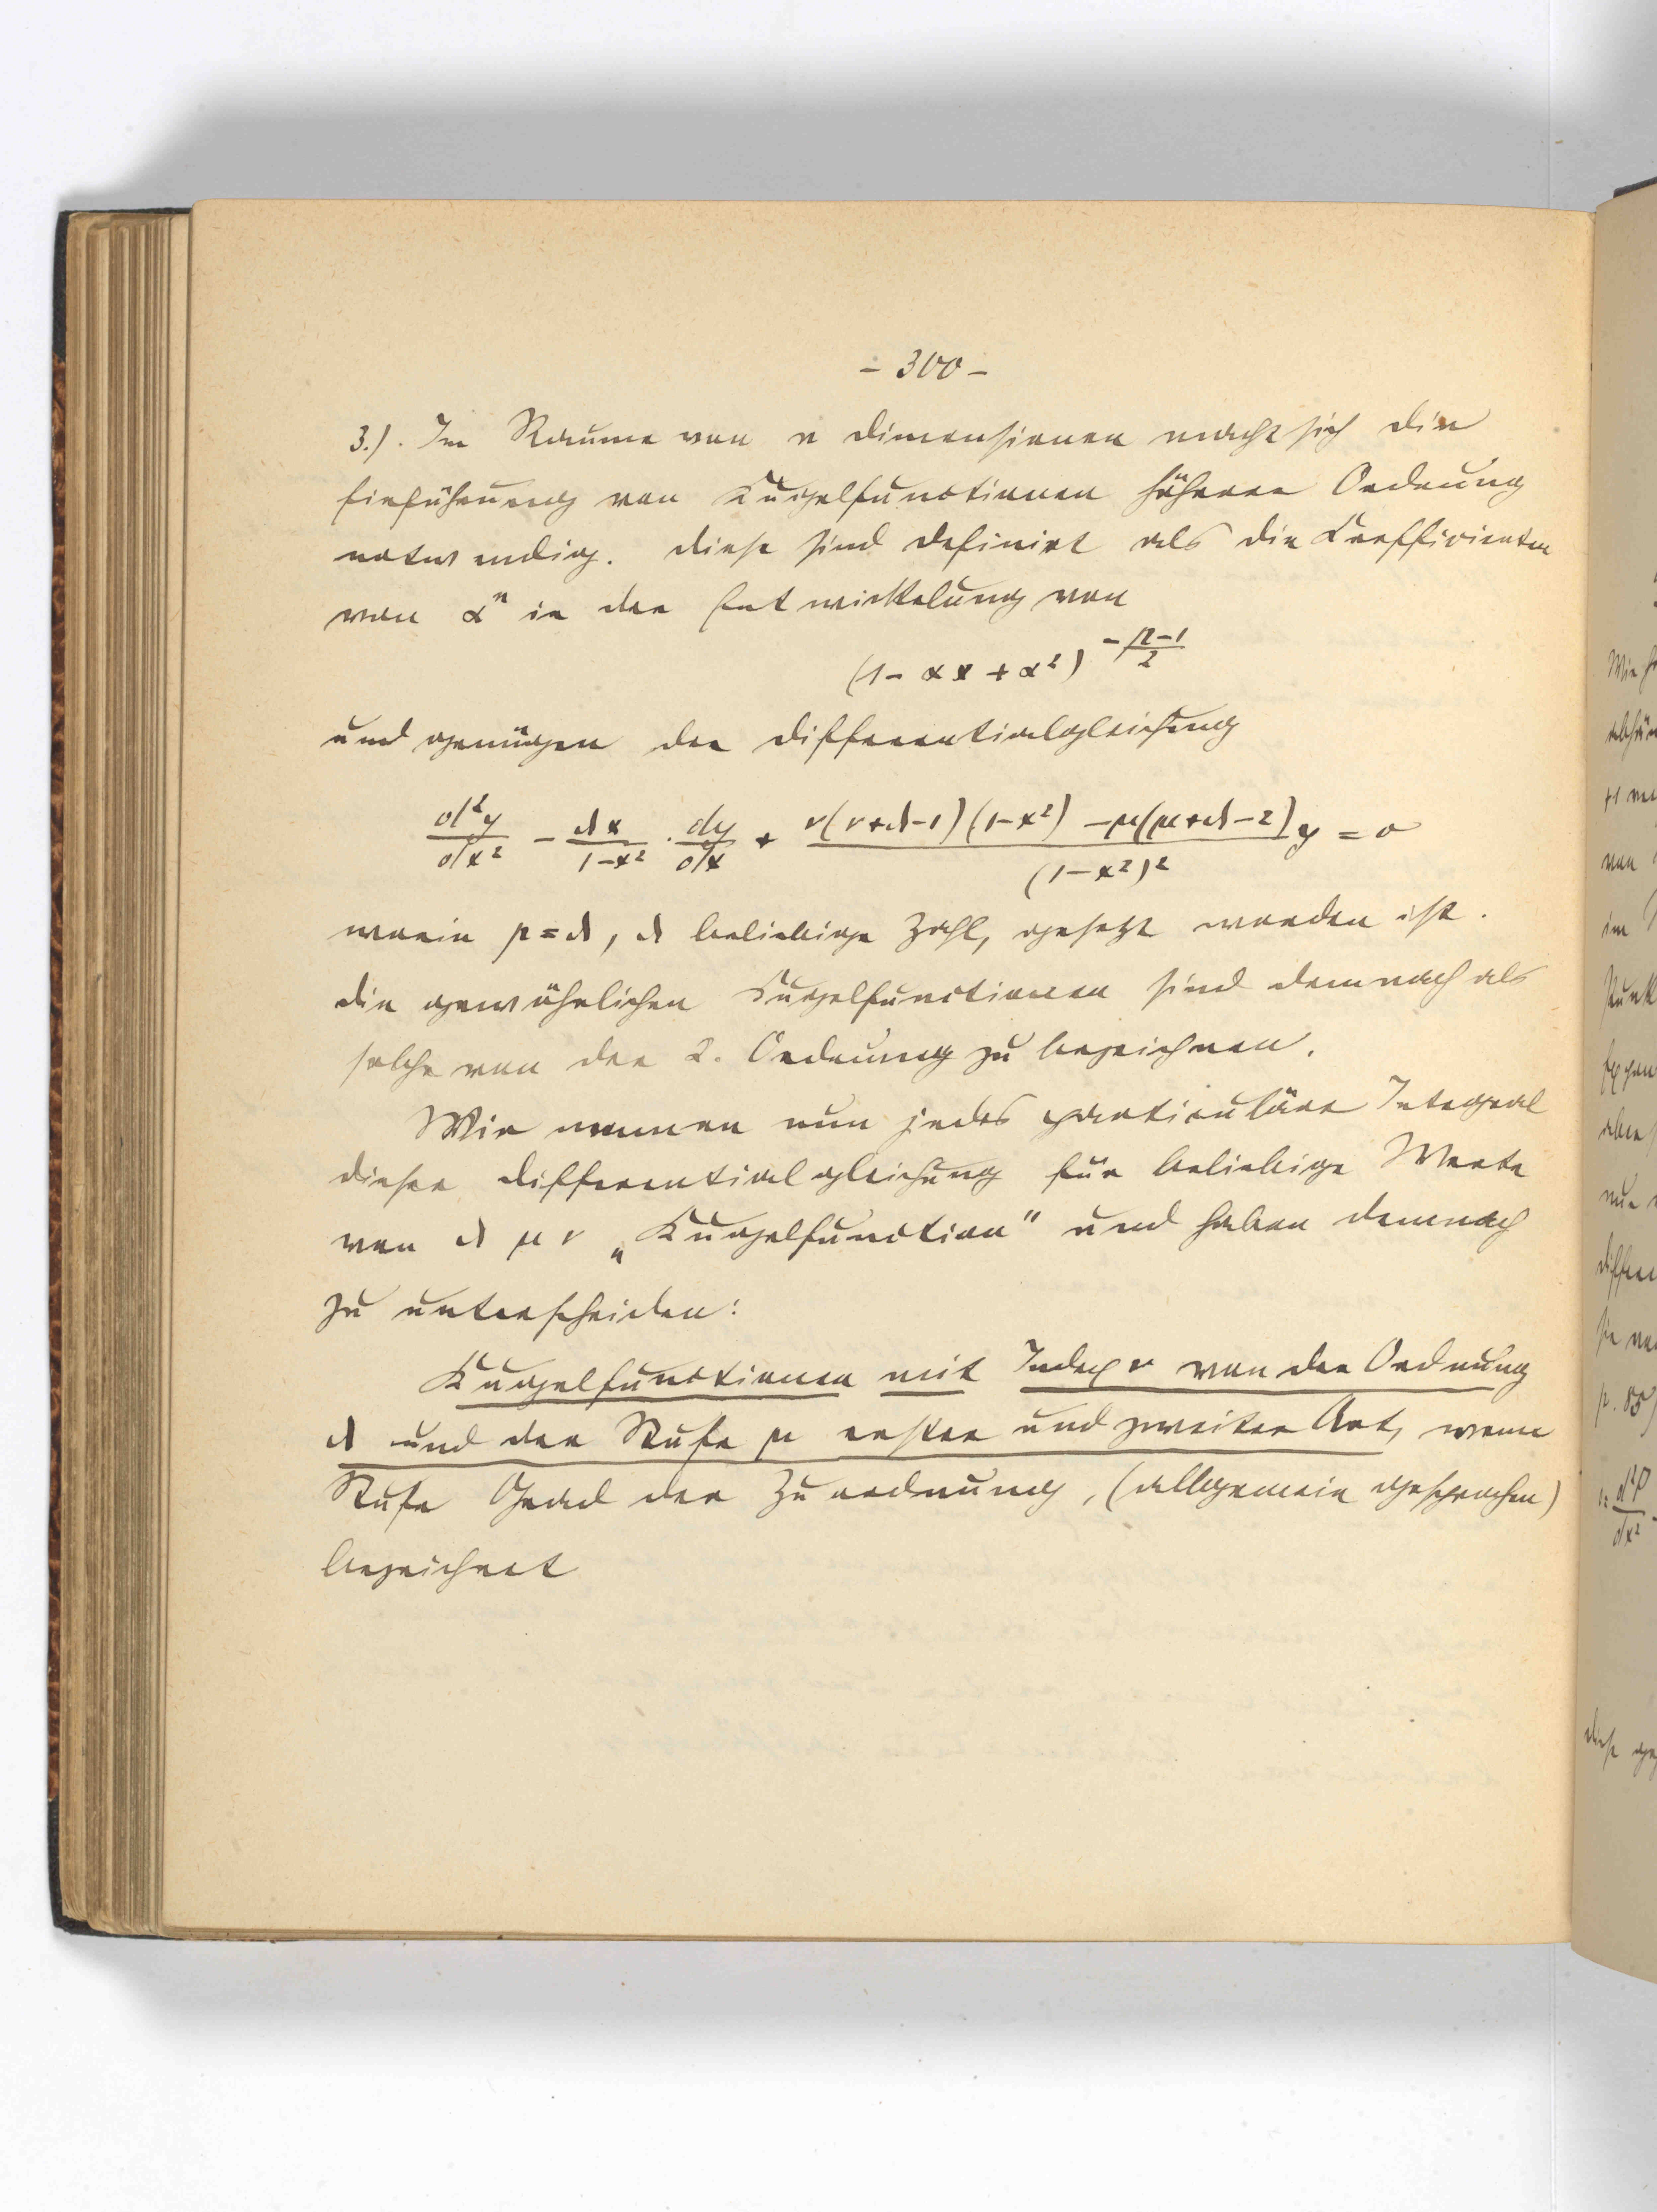 - 300 -
3.). Im Raume von n Dimensionen macht sich die
Einführung von Kugelfunctionen höherer Ordnung
notwendig. Diese sind definirt als die Coefficienten
von αⁿ in der Entwickelung von
(1 - αx + α²)^{-\frac{p-1}{2}}
und genügen der Differentialgleichung
\frac{d²y}{dx²} - \frac{λx}{1-x²} · \frac{dy}{dx} + \frac{ν(ν+λ-1)(1-x²) - μ(μ+λ-2)}{(1-x²)²} y = 0
worin p = λ, λ beliebige Zahl, gesetzt worden ist.
Die gewöhnlichen Kugelfunctionen sind demnach als
solche von der 2. Ordnung zu bezeichnen.
Wir nennen nun jedes particuläre Integral
dieser Differentialgleichung für beliebige Werte
von λ μ ν „Kugelfunction" und haben demnach
zu unterscheiden:
Kugelfunctionen mit Index ν von der Ordnung
λ und der Stufe μ erster und zweiter Art, wenn
Stufe Grad der Zuordnung, (allgemein gesprochen)
bezeichnet